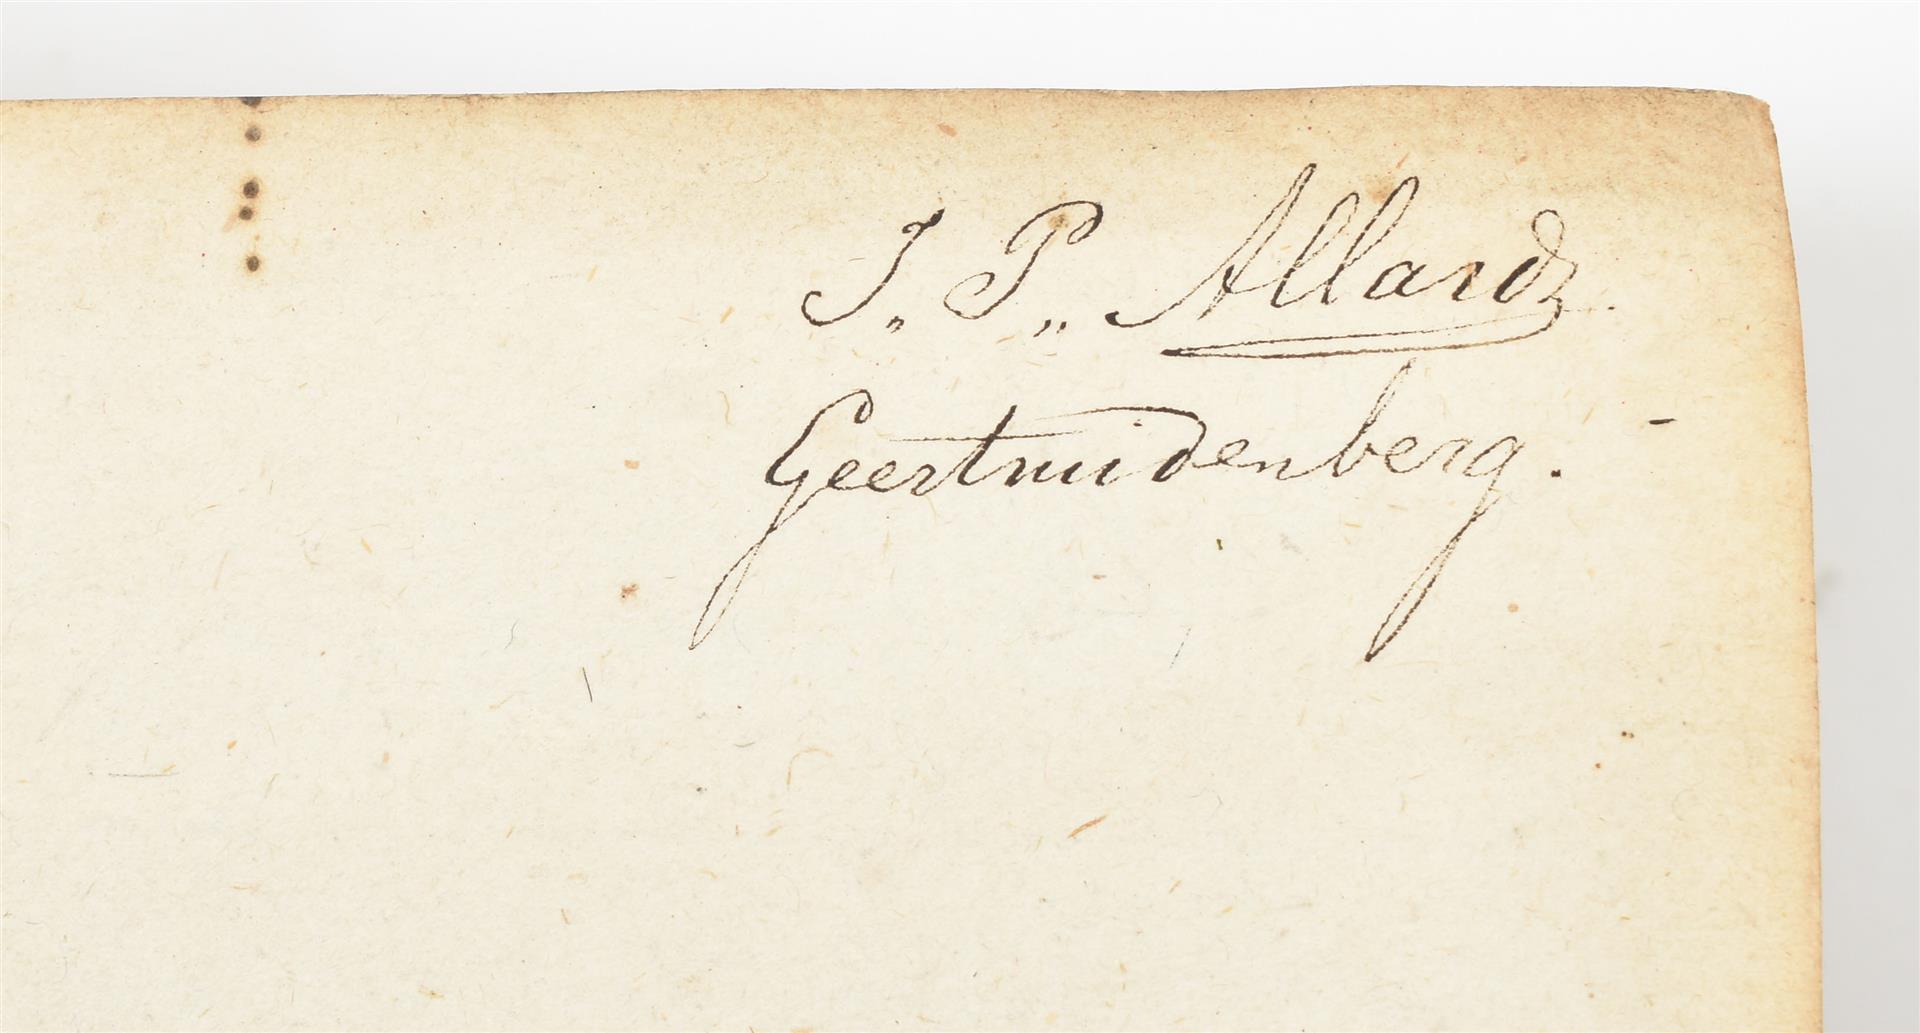 J. P. Allard
Geertruidenberg.